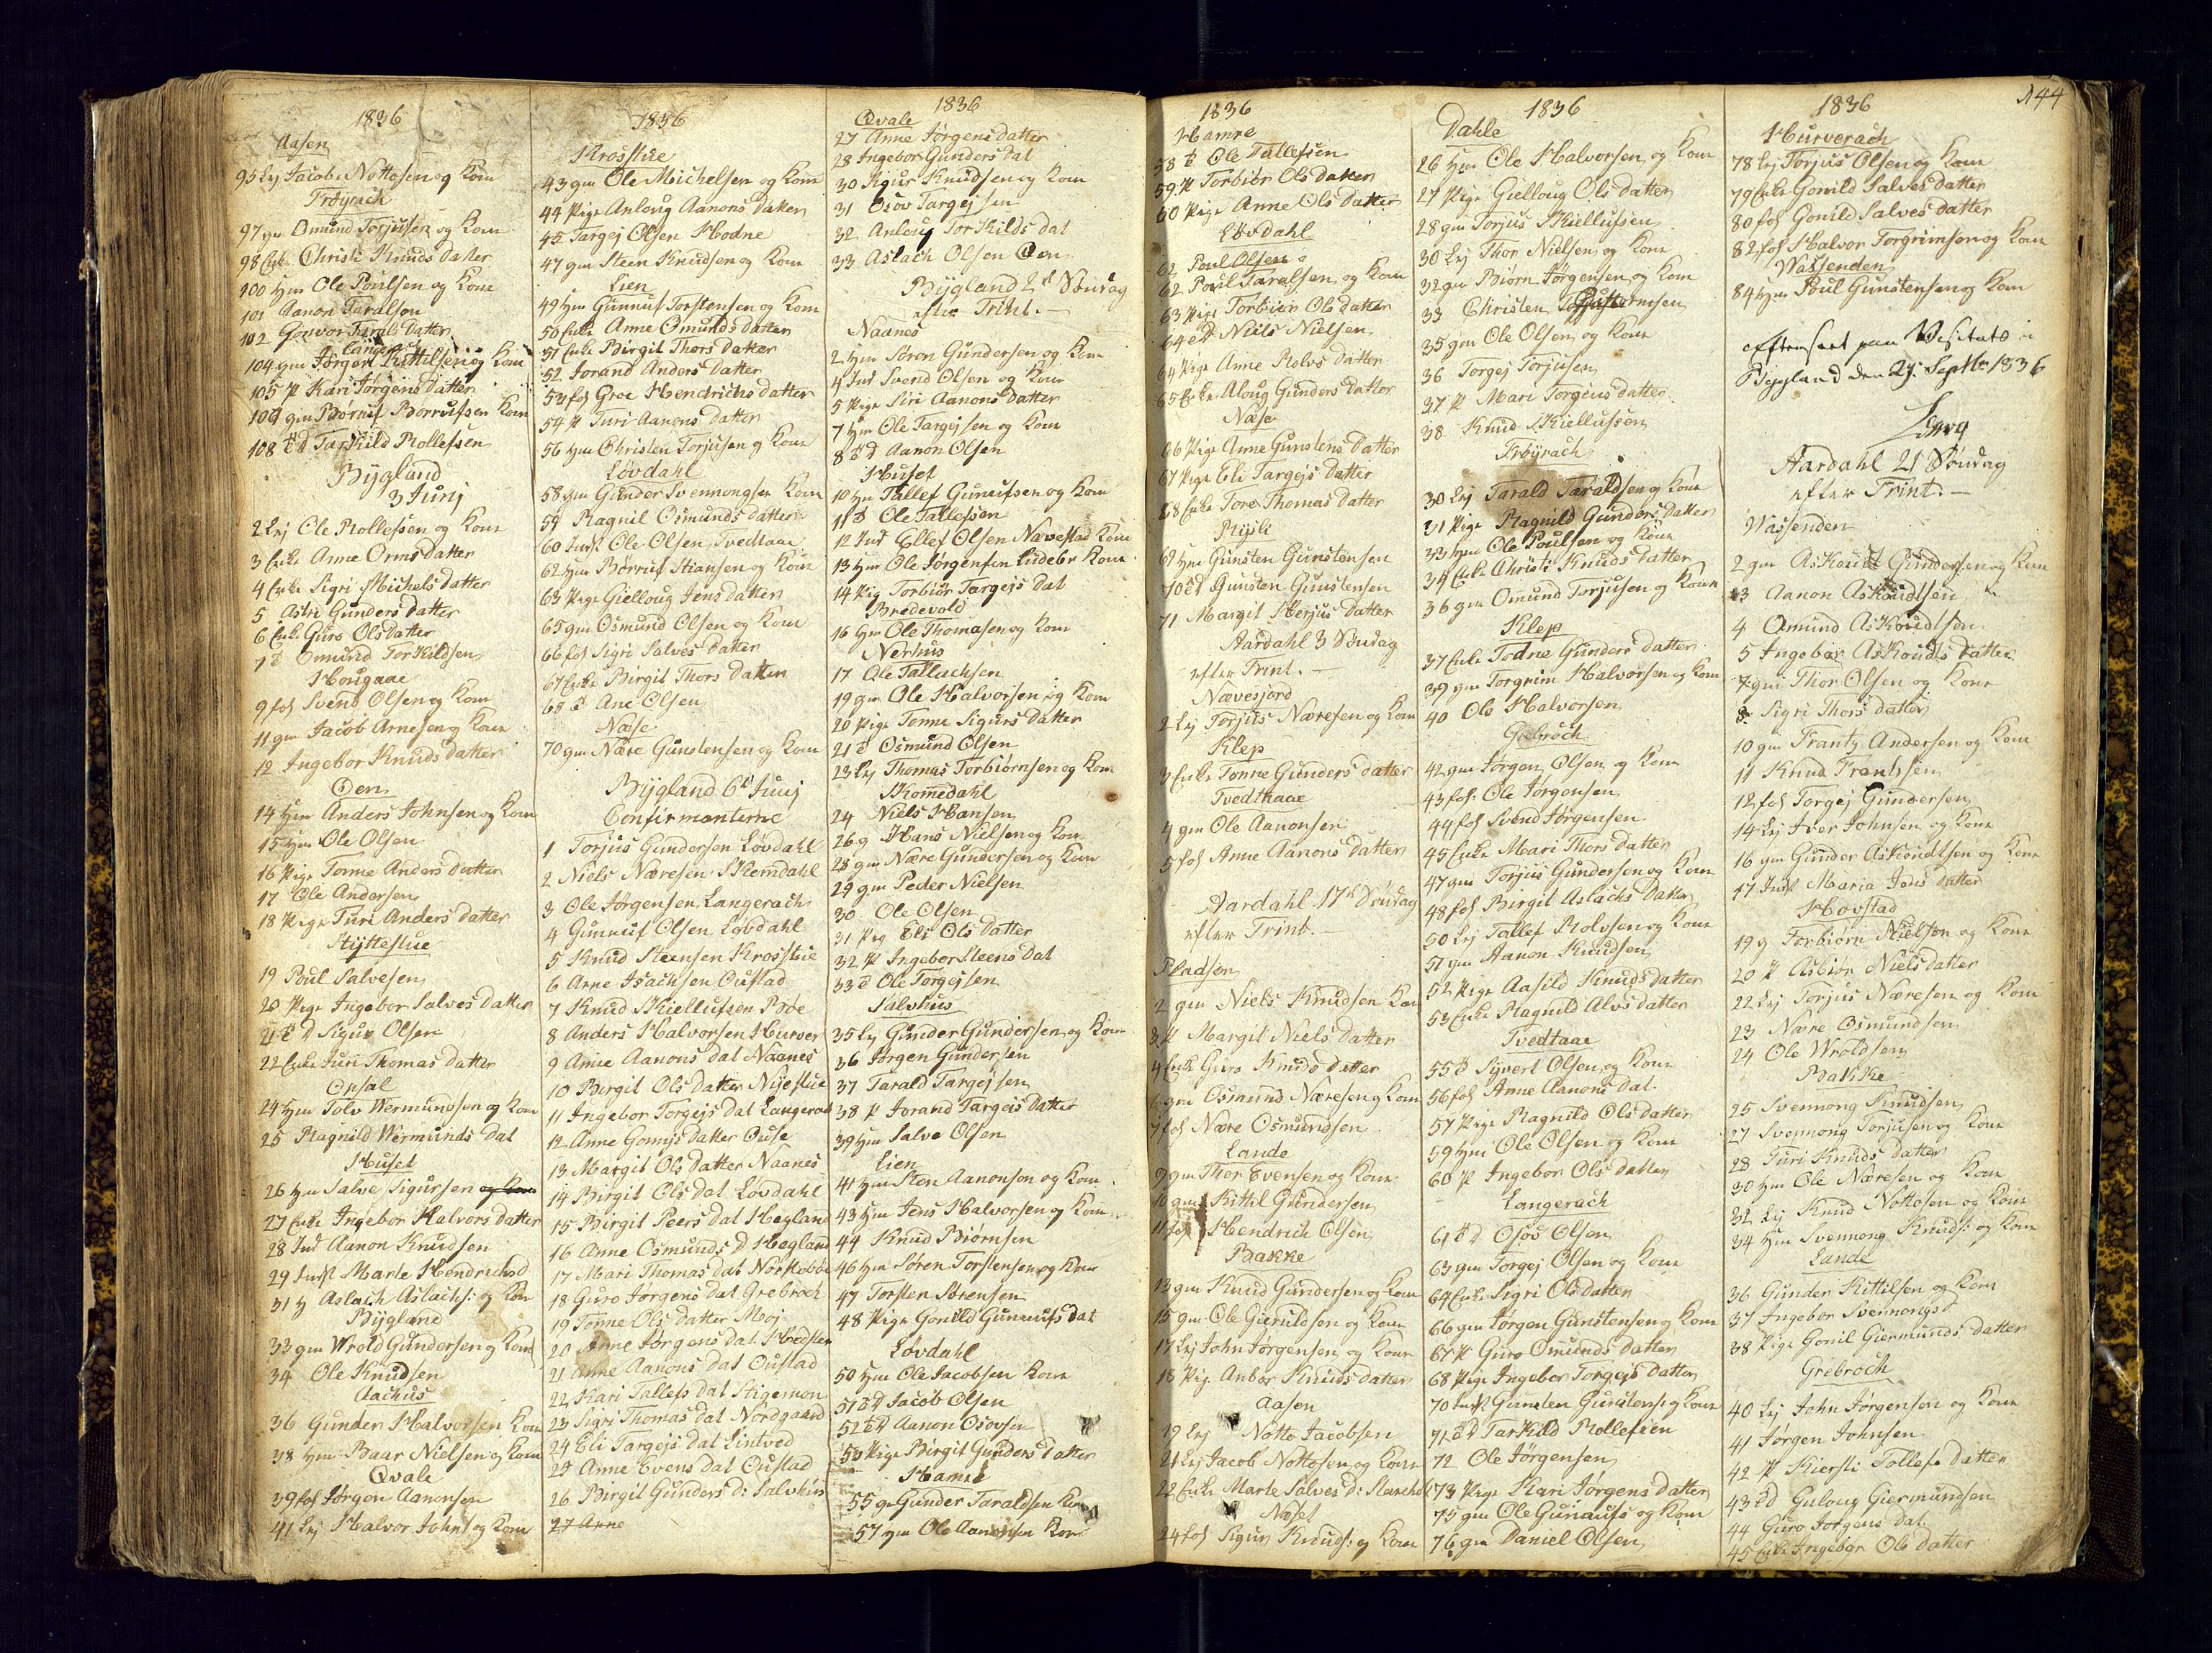 1836
Aasen
95 Lej Jacob Nottosen og Kone
Frøyrach
97 gm Omund Torjusen og Kone
98 Enke Christi Knuds datter
100 Hm Ole Poulsen og Kone
101 Aanon Taralson
102 Gunvor Tarals datter
Langerach
104 gm Jørgen Kittilsen og Kone
105 P Kari Jørgens datter
108 D Tarkild Rollefsen
Bygland
3 Junij
2 Lej Ole Rollefsen og Kone
3 Enke Anne Orms datter
4 Enke Sigri Michels datter
5 Astri Gunders datter
6 Enke Guro Ols datter
7 D Omund Torkildsen
Hougaae
9 fol Svend Olsen og Kone
11 gm Jacob Arnesen og Kone
12 Ingebor Knuds datter
Øen
14 Hm Anders Johnsen og Kone
15 Hm Ole Olsen
16 Pige Tonne Anders datter
17 Ole Andersen
18 Pige Turi Anders datter
Stÿttestue
19 Poul Salvesen
20 Pige Ingebor Salves datter
21 D Sigur Olsen
22 Enke Turi Thomas datter
Opsal
24 Hm Tolv Wermundsen og Kone
25 Ragnild Wermunds dat
Huset
26 Hm Salve Sigursen og Kone
27 Enke Ingebor Halvors datter
28 Ind Aanon Knudsen
29 Indst Marte Hendrichs d
31 H Aslach Aslachs: og Kon
Bÿgland
33 gm Wrold Gundersen og Kone
34 Ole Knudsen
Aachus
36 Gunder Halvorsen Kone
38 Hm Baar Nielsen og Kone
Qvale
39 fol Jørgen Aanonsen
41 Lej Halvor Johns og Kone
1836
Krosstue
43 gm Ole Michelsen og Kone
44 Pige Anloug Aanons datter
45 Targej Olsen Hodne
47 gm Steen Knudsen og Kone
Lien
49 Hm Gunnuf Torstensen og Kone
50 Enke Anne Omunds datter
51 Enke Birgit Thors datter
52 Jorand Anders datter
53 fol Groe Hendrichs datter
54 P Turi Aanons datter
56 Hm Christen Torjusen og Kone
Løvdahl
58 gm Gunder Svennongsen Kone
59 Ragnil Osmunds datter
60 Indst Ole Olsen Tvedtaae
62 Hm Børruf Stiansen og Kone
63 Pige Gielloug Jens datter
65 gm Osmund Olsen og Kone
66 fol Sigri Salves datter
67 Enke Birgit Thors datter
68 D Ane Olsen
Næse
70 gm Nære Gunstensen og Kone
Bÿgland 6 Junij
Confirmanterne
1 Torjus Gundersen Løvdahl
2 Niels Næresen Skomdahl
3 Ole Jørgensen Langerach
4 Gunnuf Olsen Løvdahl
5 Knud Steensen Krosstue
6 Arne Isachsen Oustad
7 Knud Skiellufsen Boe
8 Anders Halvorsen Hurver
9 Anne Aanons dat Naanes
10 Birgit Ols datter Nijestue
11 Ingebor Torgejs dat Langerach
12 Anne Gonnijs datter Ouse
13 Margit Ols datter Naanes
14 Birgit Ols dat Løvdahl
15 Birgit Peers dat Hegland
16 Anne Osmunds D Hegland
17 Mari Thomas dat
18 Guro Jørgens dat Grebroch
19 Tonne Ols datter Moj
20 Anne Jørgens dat
21 Anne Aanons dat Oustad
22 Kari Tallefs dat Stigemon
23 Sigri Thomas dat Nordgaard
24 Eli Targejs dat Lintved
25 Anne Evens dat Oustad
26 Birgit Gunders d: Salvhus
27 Anne
1836
Qvale
27 Anne Jørgens datter
28 Ingebor Gunders dat
30 Sigur Knudsen og Kone
31 Osov Targejsen
32 Anloug Torkilds dat
33 Aslach Olsen Øen
Bÿgland 2d Søndag
efter Trint.
Naanes
2 Hm Søren Gundersen og Kone
4 Ind Svend Olsen og Kone
5 Pige Siri Aanons datter
7 Hm Ole Targejsen og Kone
8 D Aanon Olsen
Huset
10 Hm Tallef Gunufsen og Kone
11 D Ole Tallefsen
12 Ind Ellef Olsen Nævestad Kone
13 Hm Ole Jørgensen Kone
14 Pig Torbiør Targejs dat
Bredevold
16 Hm Ole Thomasen og Kone
Nerhus
17 Ole Tallachsen
19 gm Ole Halvorsen og Kone
20 Pige Tonne Sigurs datter
21 D Osmund Olsen
23 Lej Thomas Torbiørnsen og Kone
Skomedahl
24 Niels Hansen
26 g Hans Nielsen og Kone
28 gm Nære Gundersen og Kone
29 gm Peder Nielsen
30 Ole Olsen
31 Pig Eli Ols datter
32 P Ingebor Steens dat
33 D Ole Torgejsen
Salvhus
35 Lej Gunder Gundersen og Kone
36 Jørgen Gundersen
37 Tarald Targejsen
38 P Jorand Targejs datter
39 Hm Salve Olsen
Lien
41 Hm Sten Aanonson og Kone
43 Hm Jens Halvorsen og Kone
44 Knud Biørnsen
46 Hm Søren Torstensen og Kone
47 Torsten Sørensen
48 Pige Gonild Gunnufs dat
Løvdahl
50 Hm Ole Jacobsen Kone
51 D Jacob Olsen
52 D Aanon Osovsen
53 Pige Birgit Gunders datter
Hamre
55 g Gunder Taraldsen Kone
57 Hm Ole Aanonsen Kone
1836
Hamre
58 D Ole Tallefsen
59 P Torbiør Ols datter
60 Pige Anne Ols datter
Løvdahl
62 Poul Olsen
62 Poul Taralsen og Kone
63 Pige Torbiør Ols datter
64 D Niels Nielsen
64 Pige Anne Rolvs datter
65 Enke Aloug Gunders datter
Næse
66 Pige Anne Gunstens datter
67 Pige Eli Targejs datter
68 Enke Tore Thomas datter
69 Hm Gunsten Gunstensen
70 D Gunsten Gunstensen
71 Margit Herjus datter
Aardahl 3 Søndag
efter Trint.
Nævesjord
2 Lej Torjus Næresen og Kone
Klep
3 Enke Tonne Gunders datter
Tvedthaae
4 gm Ole Aanonsen
5 fol Anne Aanons datter
Aardahl 17de Søndag
efter Trint.
Pladsen
2 gm Niels Knudsen Kone
3 P Margit Niels datter
4 Enke Guro Knuds datter
6 gm Osmund Næresen og Kone
7 fol Nære Osmundsen
Lande
9 gm Thor Evensen og Kone
10 gm Kittil Gundersen
11 fol Hendrich Olsen
Bakke
13 gm Knud Gundersen og Kone
15 gm Ole Gieruldsen og Kone
17 Lej John Jørgensen og Kone
18 Pig Anbor Knuds datter
Aasen
19 Lej Notto Jacobsen
21 Lej Jacob Nottosen og Kone
22 Enke Marte Salves d:
Næset
24 fol Sigur Knuds: og Kone
1836
Dahle
26 Hm Ole Halvorsen og Kone
27 Pige Gielloug Ols datter
28 gm Torjus Skiellufsen
30 Lej Thor Nielsen og Kone
32 gm Biørn Jørgensen og Kone
33 Christen
35 gm Ole Olsen og Kone
36 Torgej Torjusen
37 P Mari Torgeus datter
38 Knud Skiellufsen
Frøyrach
30 Lej Tarald Taraldsen og Kone
31 Pige Ragnild Gunders datter
33 Hm Ole Poulsen og Kone
34 Enke Christi Knuds datter
36 gm Omund Torjusen og Kone
Klep
37 Enke Todne Gunders datter
39 gm Torgrim Halvorsen og Kone
40 Ole Halvorsen
Grebroch
42 gm Jørgen Olsen og Kone
43 fol: Ole Jørgensen
44 fol Svend Jørgensen
45 Enke Mari Thors datter
47 gm Torjus Gundersen og Kone
48 fol Birgit Aslachs datter
50 Lej Tallef Rolvsen og Kone
51 gm Aanon Knudsen
52 Pige Aasild Knuds datter
53 Enke Ragnild Alvs datter
Tvedtaae
55 D Syvert Olsen og Kone
56 fol Anne Aanons dat.
57 Pige Ragnild Ols datter
59 Hm Ole Olsen og Kone
60 P Ingebor Ols datter
Langerach
61 D Osos Olsen
63 gm Torgej Olsen og Kone
64 Enke Sigri Ols datter
66 gm Jørgen Gunstensen og Kone
67 P Guro Omunds datter
68 Pige Ingebor Torgejs datter
70 Indst Gunsten Gunstens: og Kone
71 D Tarkild Rollefsen
72 Ole Jørgensen
73 Pige Kari Jørgens datter
75 gm Ole Gunnufs og Kone
76 gm Daniel Olsen
1836
144
Hurverach
78 Lej Torjus Olsen og Kone
79 Enke Gonild Salves datter
80 fol Gonild Salves datter
82 fol Halvor Torgrimsen og Kone
Wassenden
84 Hm Poul Gunstensen og Kone
Efterseet paa Visitats i
Bygland den 27. Septbr 1836
Aardahl 21 Søndag
efter Trint.
Wassenden
2 gm Askoud Gundersen og Kone
3 Aanon Askoudtsen
4 Omund Askoudtsen
5 Ingebor Askoudts datter
7 gm Thor Olsen og Kone
8 Sigri Thors datter
10 gm Frantz Andersen og Kone
11 Knud Frentssen
12 fol Torgej Gundersen
14 Lej Iver Johnsen og Kone
16 gm Gunder Askoudtsen og Kone
17 Indst Maria Jens datter
Hovstad
19 g Torbiørn Nielson og Kone
20 P Asbiør Niels datter
22 Lej Torjus Næresen og Kone
23 Nære Osmundsen
24 Ole Wroldsen
Bakke
25 Svennong Knudsen
27 Svennong Torjusen og Kone
28 Turi Knuds datter
30 Hm Ole Næresen og Kone
32 Lej Knud Nottosen og Kone
34 Hm Svennong Knuds: og Kone
Lande
36 Gunder Kittilsen og Kone
37 Ingebor Svennongs d
38 Pige Gonil Giermunds datter
Grebroch
40 Lej John Jørgenson og Kone
41 Jørgen Johnsen
42 P Kiersti Tollefs datter
43 D Guloug Giermundsen
44 Guro Jørgens dat.
45 Enke Ingebor Ols datter